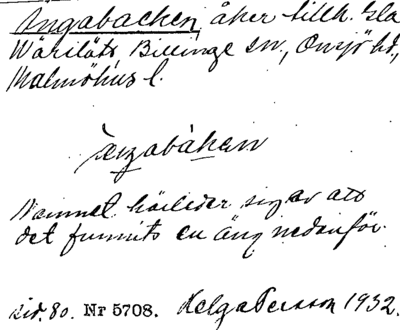 Ängabacken, åker tillh. Lla
Wäritäts Billinge sn., Onsjö hd.,
Malmöhus l.
Namnet härleder sig av att
det funnits en äng nedanför.
sid. 80. Nr 5708. Helga Persson 1932.